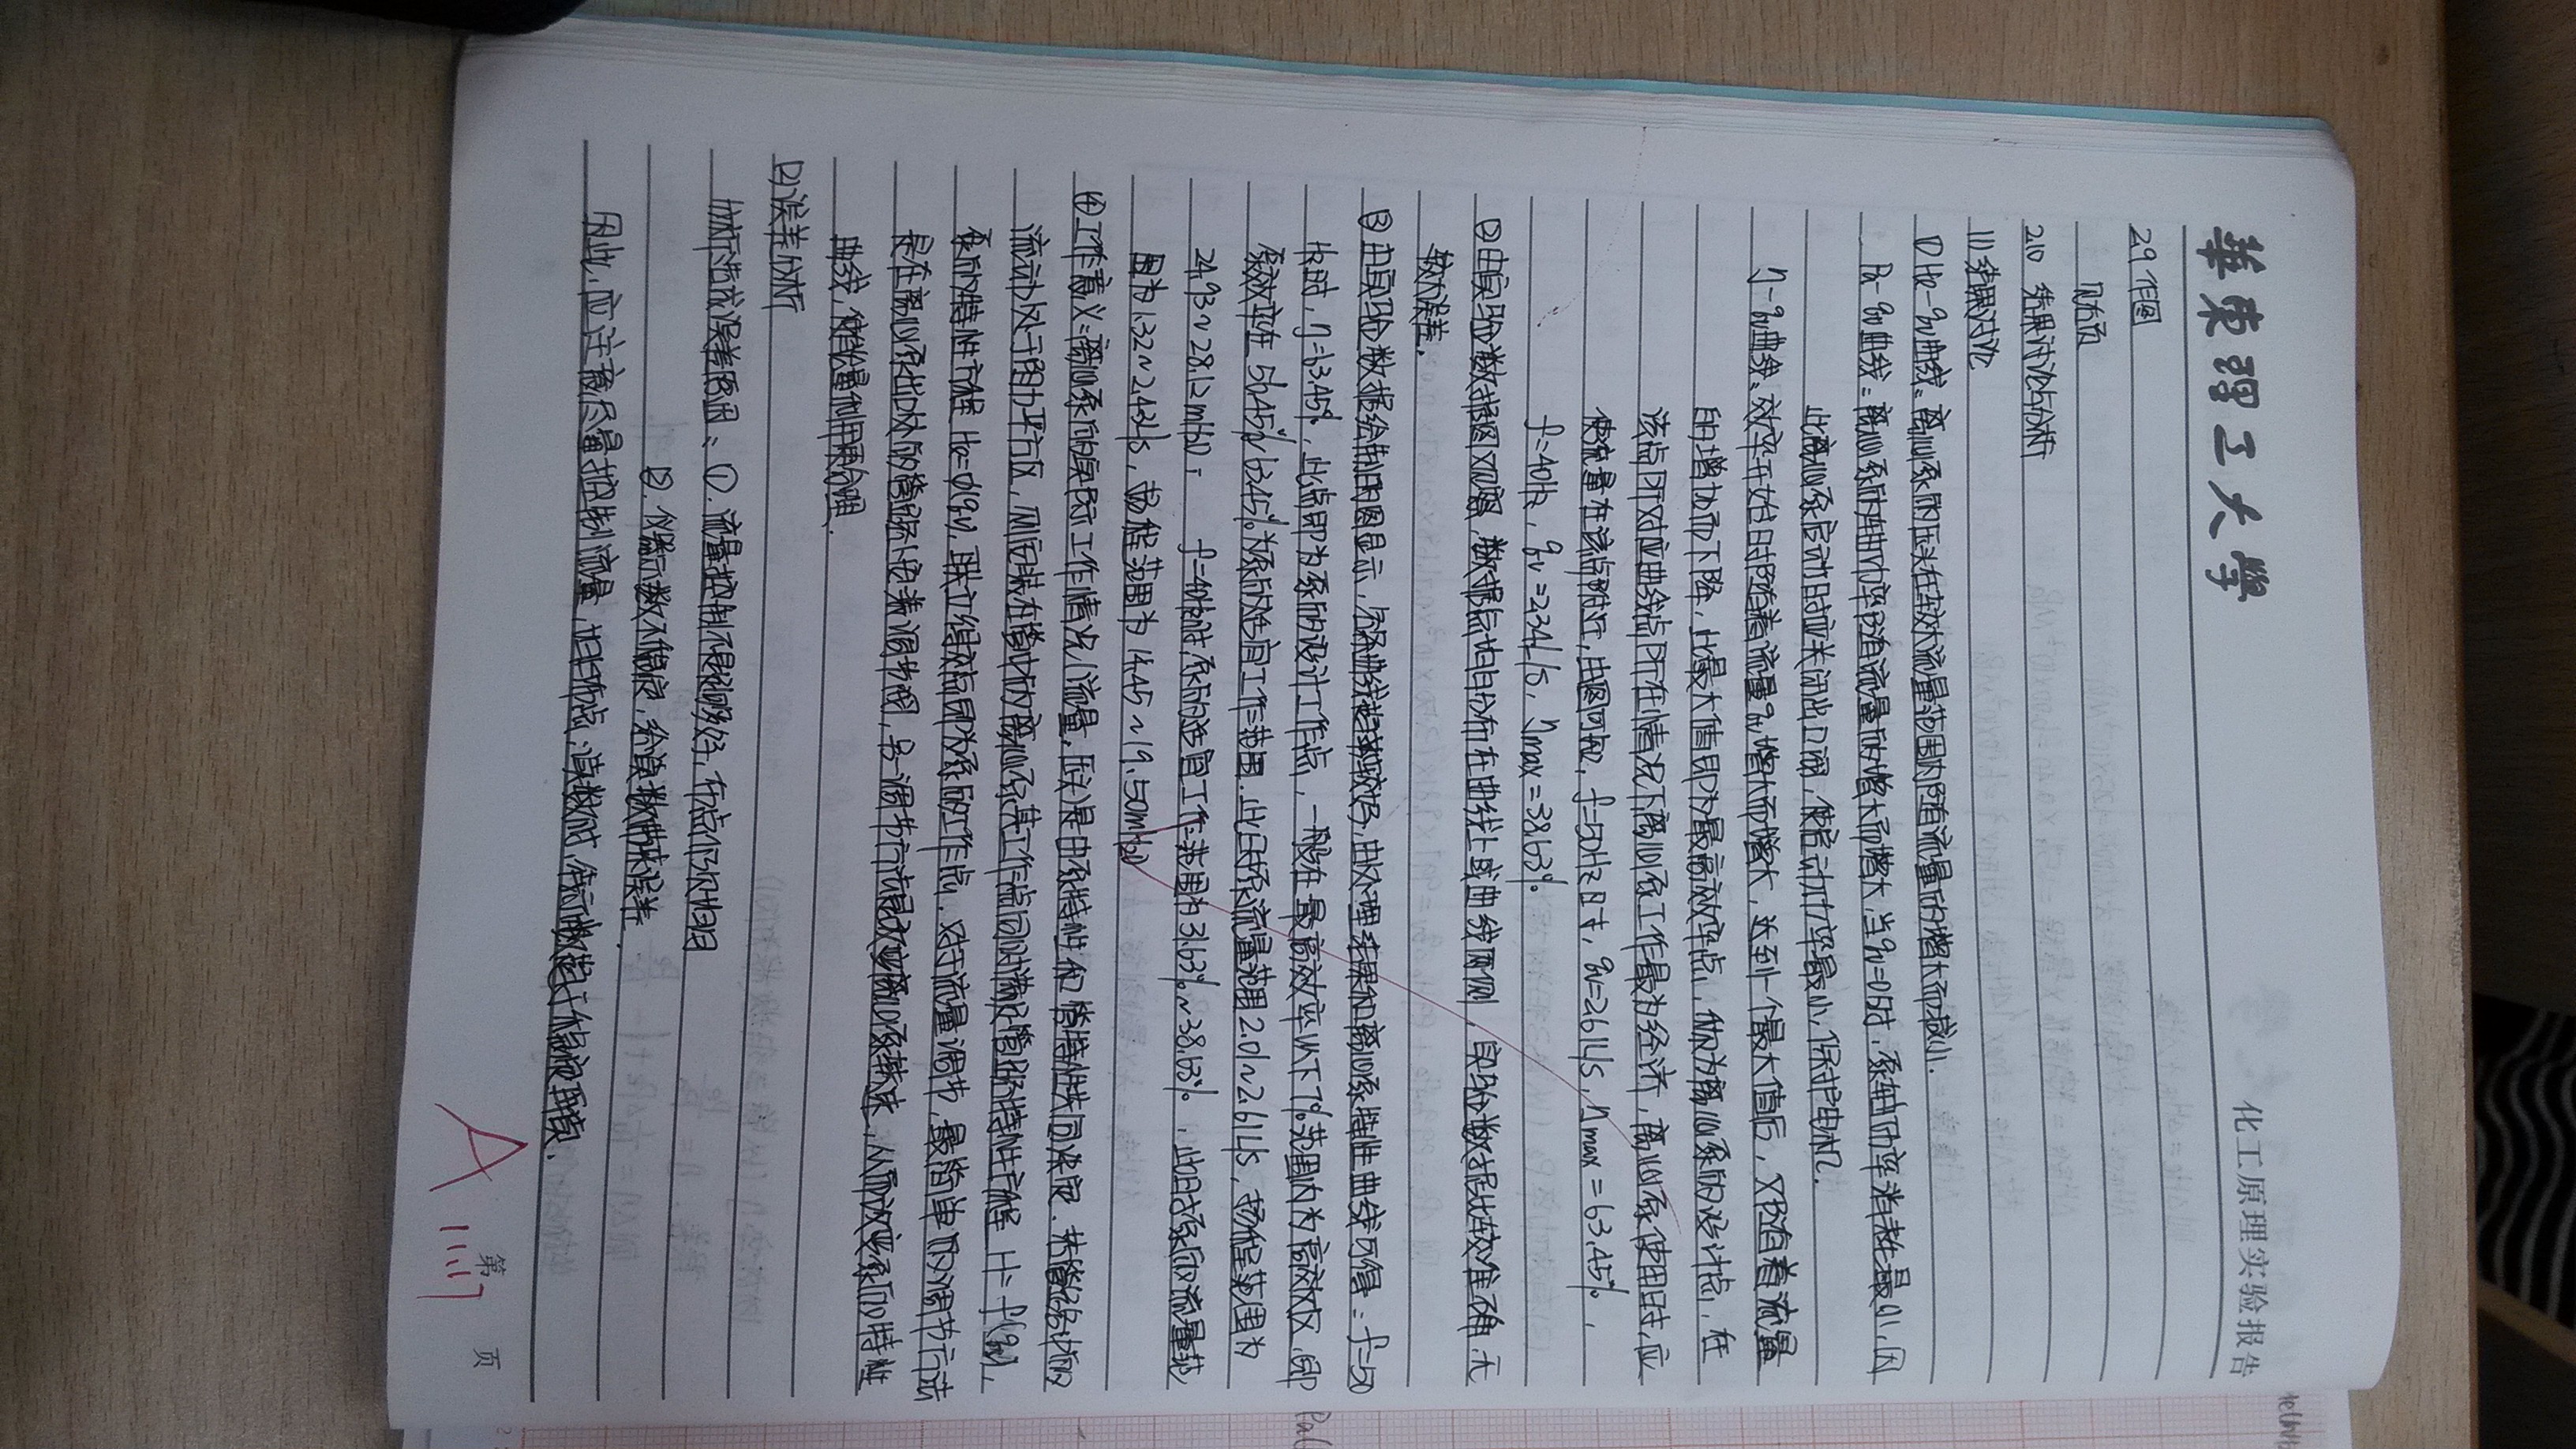 華東理工大學
化工原理实验报告
2.9 作图
见右页
2.10 结果讨论与分析
(1) 结果讨论
① He-qv曲线：离心泵的压头在较大流量范围内随流量的增大而减小.
Pa-qv曲线：离心泵的轴功率随流量的增大而增大,当qv=0时,泵轴功率消耗最小,因
此离心泵启动时应关闭出口阀,使启动功率最小,保护电机.
η-qv曲线：效率开始时随着流量qv增大而增大,达到一个最大值后,又随着流量
的增加而下降,此最大值即为最高效率点,称为离心泵的设计点,在
该点所对应曲线点所在情况下离心泵工作最为经济,离心泵使用时,应
使流量在该点附近,由图可知,f=50Hz时,qv=2.61L/s,ηmax=63.45%,
f=40Hz,qv=2.34L/s,ηmax=38.63%
② 由实验数据图观察,数据点均匀分布在曲线上或曲线两侧,实验数据比较准确,无
较大误差.
③ 由实验数据绘制的图显示,各条曲线趋势较好,由处理结果和离心泵特性曲线可得：f=50
Hz时,η=63.45%,此点即为泵的设计工作点,一般在最高效率以下7%范围内为高效区,即
泵效率在56.45%~63.45%为泵的适宜工作范围.此时泵流量范围2.01~2.61L/s,扬程范围为
24.93~28.12mH2O; f=40Hz时,泵的适宜工作范围为31.63%~38.63%,此时泵的流量范
围为1.32~2.43L/s,扬程范围为14.45~19.50mH2O
④ 工作意义：离心泵的实际工作情况(流量,压头)是由泵特性和管特性共同决定.若管路中的
流动处于阻力平方区,则安装在管中的离心泵其工作点同时满足管路特性方程 H=f(qv),
泵的特性方程 He=φ(qv),联立得交点即为泵的工作点.对于流量调节,最简单的调节方法
是在离心泵出口处的管路上安装调节阀,另一调节方法是改变离心泵转速,从而改变泵的特性
曲线,使能量利用更合理.
(2) 误差分析
分析造成误差原因：①.流量控制不是够好,布点不均匀
②.仪器示数不稳定,给读数带来误差.
因此,应注意尽量控制流量,均匀布点;读数时,待示数趋于稳定再读.
第 页
A 11.17